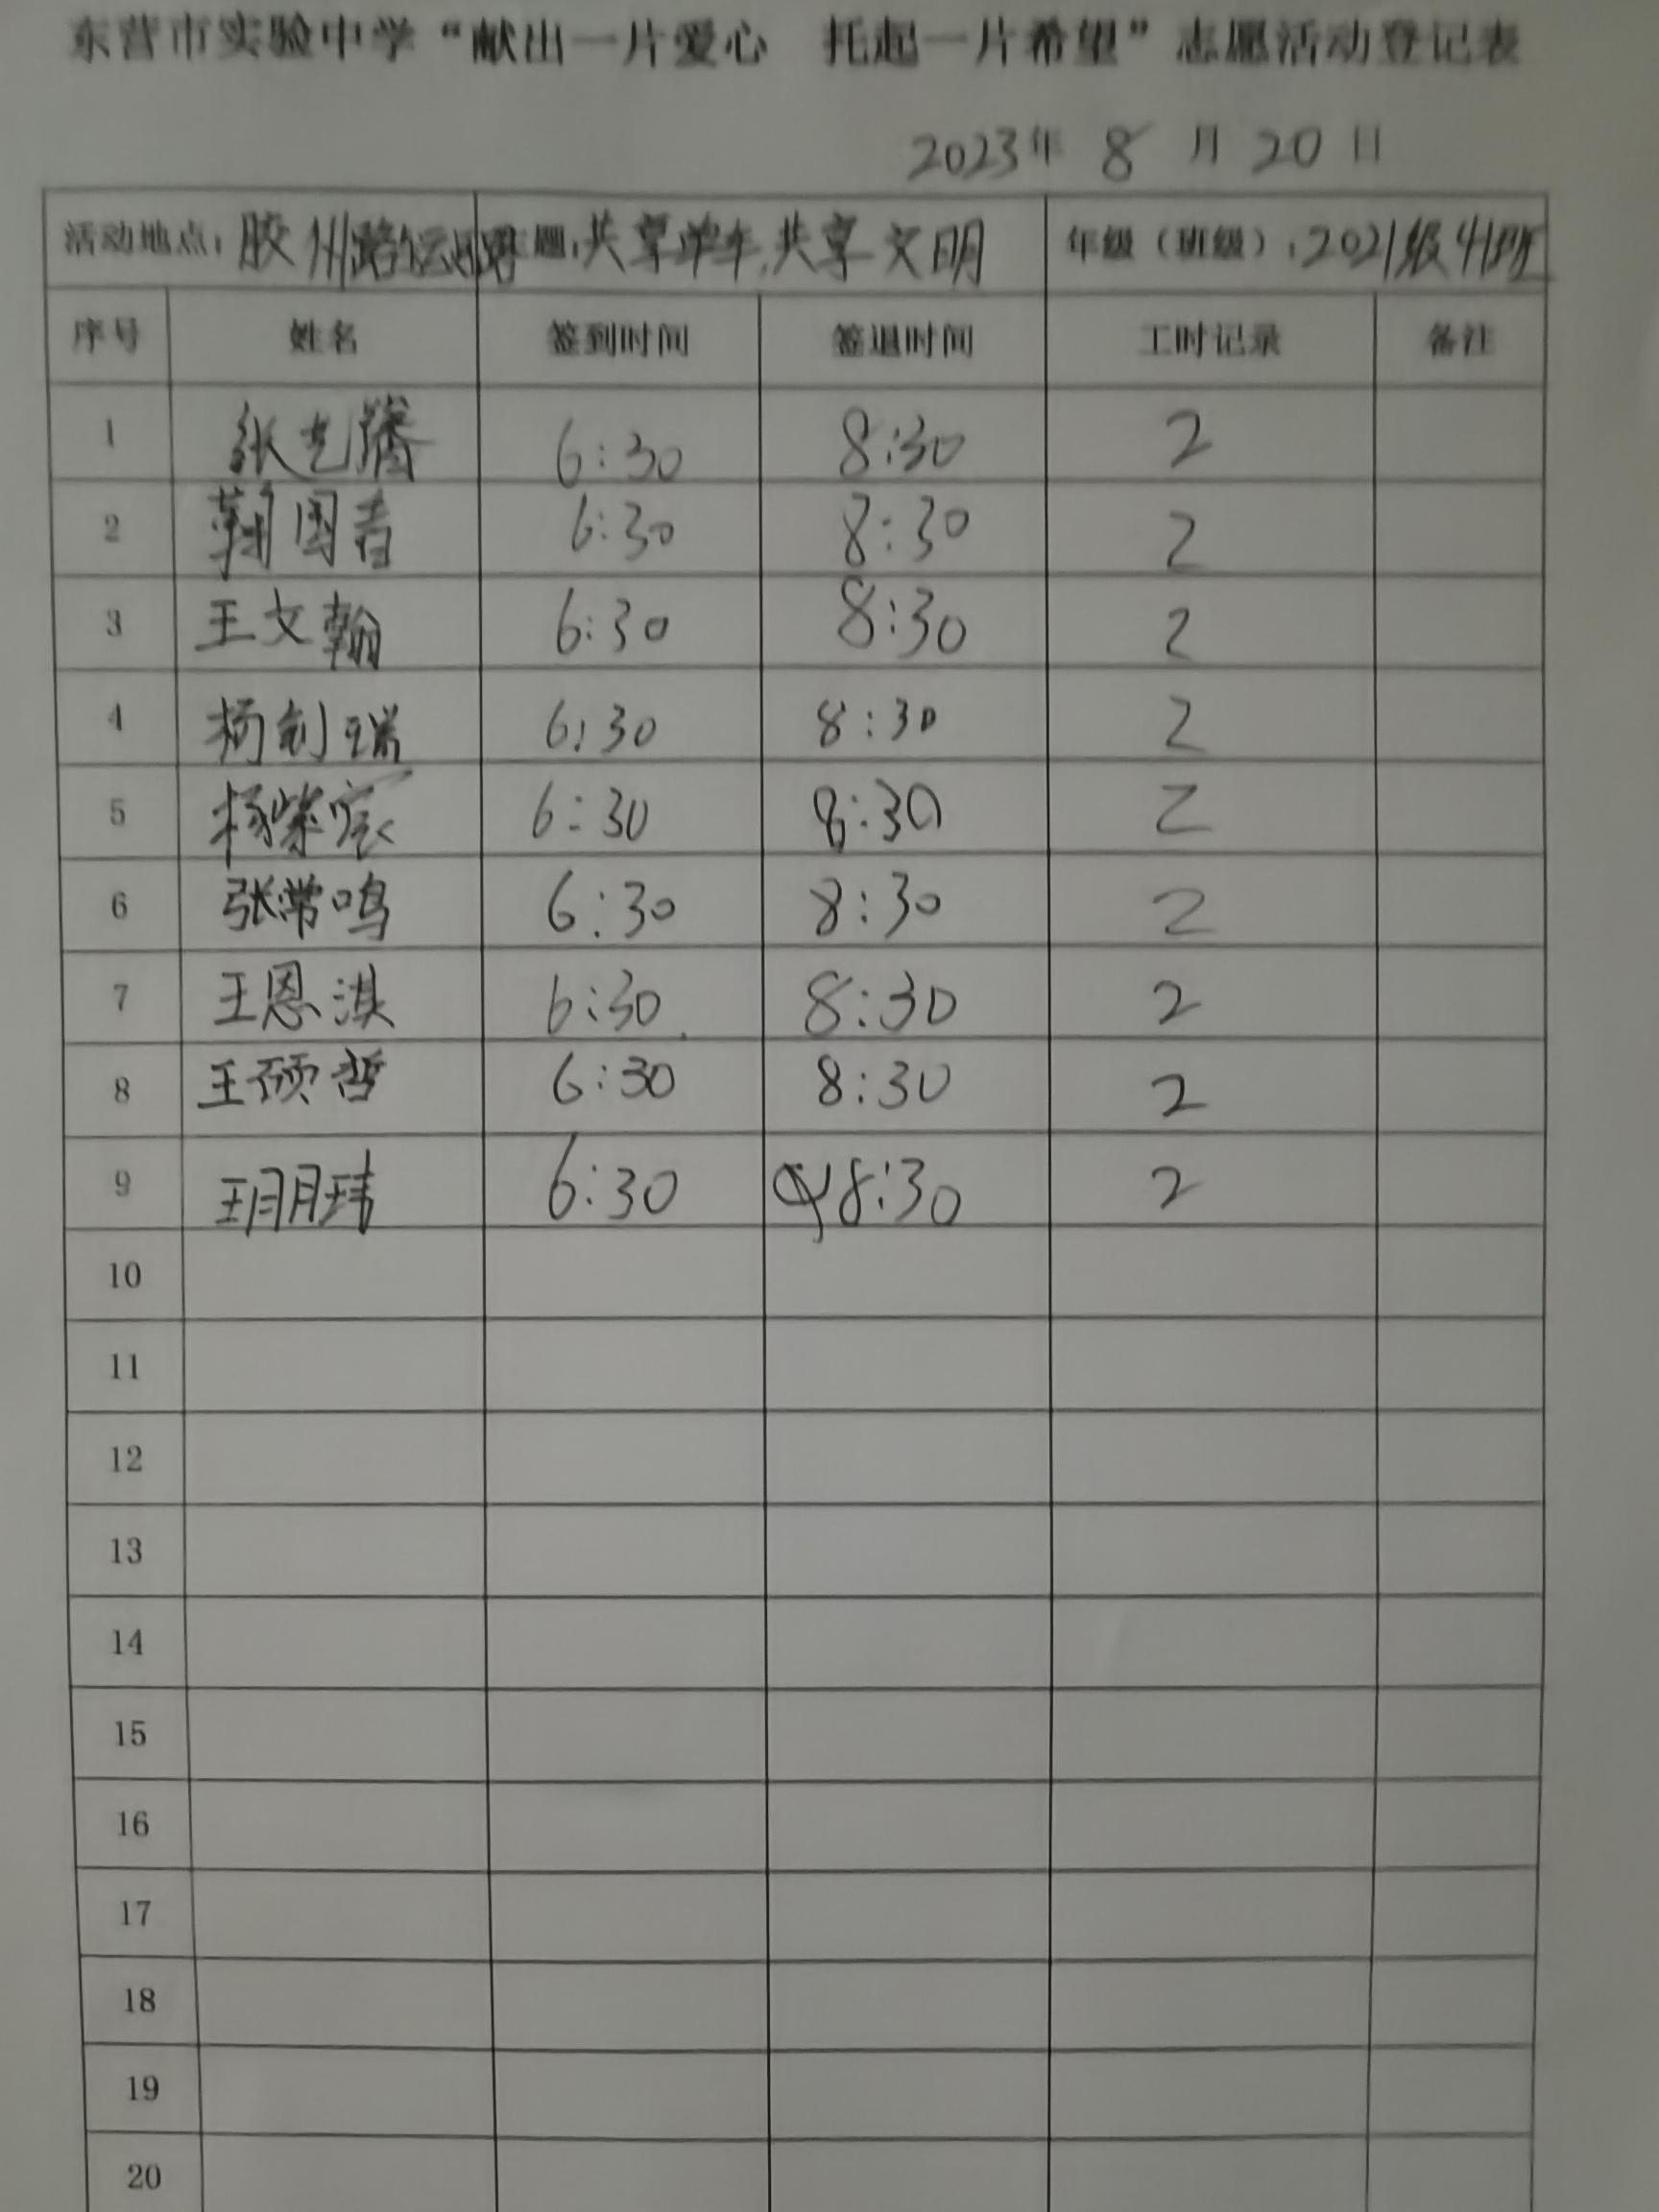 东营市实验中学“献出一片爱心 托起一片希望”志愿活动登记表
2023年 8 月 20 日
活动地点：胶州路 题：共享单车,共享文明 年级（班级）：2021级41班
序号 姓名 签到时间 签退时间 工时记录 备注
1 张艺腾 6:30 8:30 2
2 国青 6:30 8:30 2
3 王文翰 6:30 8:30 2
4 杨创瑞 6:30 8:30 2
5 杨紫宸 6:30 8:30 2
6 张常鸣 6:30 8:30 2
7 王恩淇 6:30 8:30 2
8 王硕哲 6:30 8:30 2
9 王玥玮 6:30 8:30 2
10
11
12
13
14
15
16
17
18
19
20